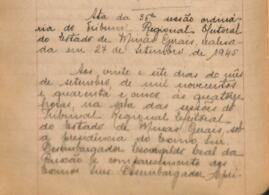 Ata da 35ª sessão ordiná-
ria do Tribunal Regional Eleitoral
do Estado de Minas Gerais, realisa-
da em 27 de Setembro de 1945
Aos vinte e sete dias do mês
de setembro de mil novecentos
e quarenta e cinco, às quatorze
horas, na sala das sessões do
Tribunal Regional Eleitoral
do Estado de Minas Gerais, sob
a presidencia do Exmo. Snr.
Desembargador Leal da
Paixão e comparecimento dos
Exmos Snrs. Desembargador